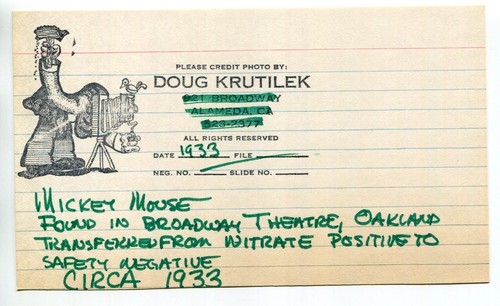 PLEASE CREDIT PHOTO BY:
DOUG KRUTILEK
921 BROADWAY
ALAMEDA, CA
523-2377
ALL RIGHTS RESERVED
DATE 1933 FILE
NEG. NO. SLIDE NO.
MICKEY MOUSE
FOUND IN BROADWAY THEATRE, OAKLAND
TRANSFERRED FROM NITRATE POSITIVE TO
SAFETY NEGATIVE
CIRCA 1933